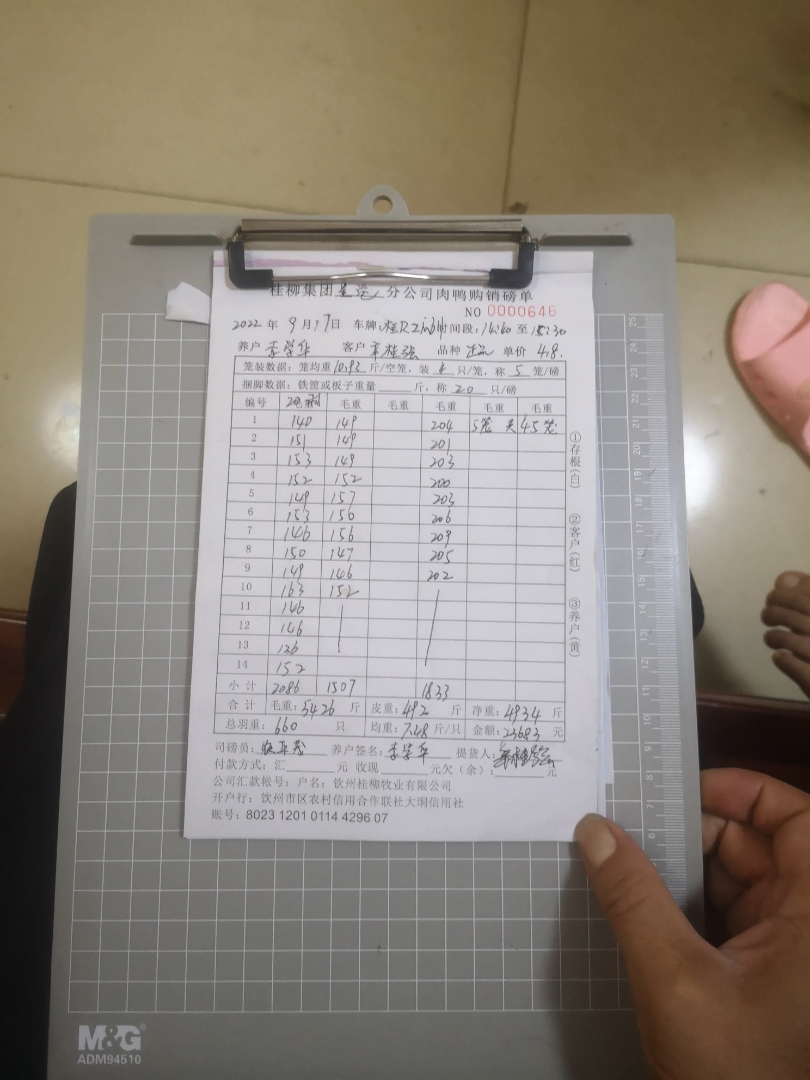 桂柳集团 分公司肉鸭购销磅单
NO 0000646
2022 年 9 月 17 日 车牌 时间段: 至 18:30
养户 李学华 客户 覃桂强 品种 单价 4.8.
笼装数据:笼均重 10.93 斤/空笼,装 只/笼,称 5 笼/磅
捆脚数据:铁篮或板子重量 斤,称 20 只/磅
编号 毛重 毛重 毛重 毛重 毛重
1 140 149 204 5笼 45笼
2 151 149 201
3 153 149 203
4 152 152 200
5 149 157 203
6 153 150 206
7 146 156 209
8 150 147 205
9 149 146 202
10 163 152
11 146
12 146
13 136
14 152
小计 2086 1507 1833
合计 毛重:5426 斤 皮重:492 斤 净重:4934 斤
总羽重:660 只 均重:7.48 斤/只 金额:23683 元
司磅员: 养户签名:李学华 提货人:
付款方式:汇 元 收现 元欠(余): 元
公司汇款帐号:户名:钦州桂柳牧业有限公司
开户行:钦州市区农村信用合作联社大垌信用社
账号:8023 1201 0114 4296 07
①存根(白) ②客户(红) ③养户(黄)
25
24
23
22
21
20
19
18
17
16
15
14
13
12
11
10
9
8
7
6
M&G
ADM94510